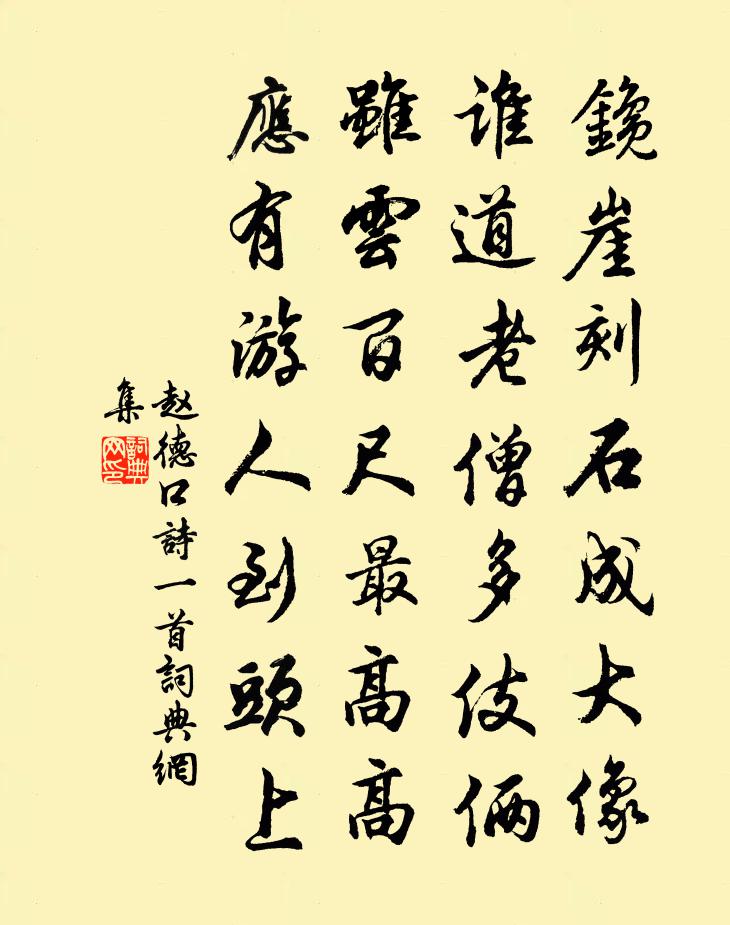 鑱崖刻石成大像
誰道老僧多伎倆
雖雲百尺最高高
應有游人到頭上
赵德口詩一首詞典網
集
詞典
網印